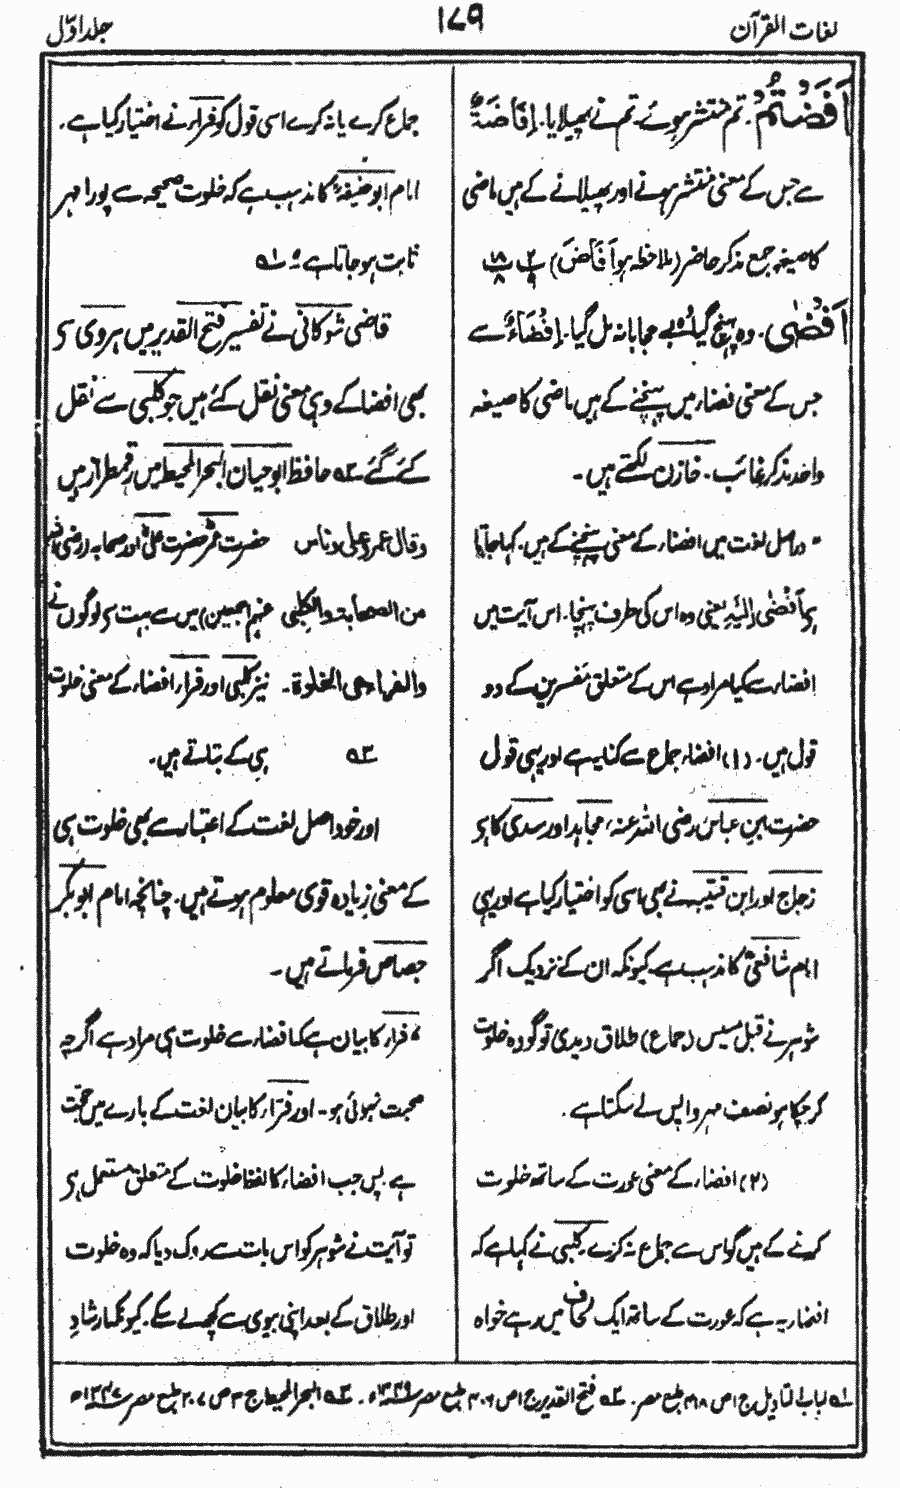 لغات القرآن
۱۷۹
جلد اوّل
اَفَضْتُمْ۔ تم منتشر ہوئے۔ تم نے پھیلایا۔ اِفَاضَۃٌ
سے جس کے معنی منتشر ہونے اور پھیلانے کے ہیں ماضی
کا صیغہ جمع مذکر حاضر (ملاحظہ ہو اَفَاضَ) پ ۲ ۹ پ ۱۸ ۸
اَفْضٰی۔ وہ پہنچ گیا، وہ بے محابانہ مل گیا۔ اِفْضَاءٌ سے
جس کے معنی فضاء میں پہنچنے کے ہیں ماضی کا صیغہ
واحد مذکر غائب۔ خازن لکھتے ہیں۔
" دراصل لغت میں افضاء کے معنی پہنچنے کے ہیں۔ کہا جاتا
ہے اَفْضٰی اِلَیْہِ یعنی وہ اس کی طرف پہنچا۔ اس آیت میں
افضاء سے کیا مراد ہے اس کے متعلق مفسرین کے دو
قول ہیں۔ (۱) افضاء جماع سے کنایہ ہے اور یہی قول
حضرت ابن عباس رضی اللہ عنہ، مجاہد اور سدی کا ہے
زجاج اور ابن قتیبہ نے بھی اسی کو اختیار کیا ہے اور یہی
امام شافعیؒ کا مذہب ہے۔ کیونکہ ان کے نزدیک اگر
شوہر نے قبل مسیس (جماع) طلاق دیدی تو گو وہ خلوت
کر چکا ہو نصف مہر واپس لے سکتا ہے۔
(۲) افضاء کے معنی عورت کے ساتھ خلوت
کرنے کے ہیں گو اس سے جماع نہ کرے۔ کلبی نے کہا ہے کہ
افضاء یہ ہے کہ عورت کے ساتھ ایک لحاف میں رہے خواہ
جماع کرے یا نہ کرے اسی قول کو فراء نے اختیار کیا ہے۔
امام ابو حنیفہؒ کا مذہب ہے کہ خلوت صحیحہ سے پورا مہر
ثابت ہو جاتا ہے" ۱؎
قاضی شوکانی نے تفسیر فتح القدیر میں ہروی سے
بھی افضا کے وہی معنی نقل کئے ہیں جو کلبی سے نقل
کئے گئے ۲؎ حافظ ابو حیان البحر المحیط میں رقمطراز ہیں
وقال عمر وعلی وناس حضرت عمرؓ حضرت علیؓ اور صحابہ (رضی اللہ
من الصحابۃ والکلبی عنہم اجمعین) میں سے بہت سے لوگوں نے
والفراء ھی الخلوۃ۔ نیز کلبی اور فراء افضاء کے معنی خلوت
۳؎ ہی کے بتلاتے ہیں۔
اور خود اصل لغت کے اعتبار سے بھی خلوت ہی
کے معنی زیادہ قوی معلوم ہوتے ہیں۔ چنانچہ امام ابو بکر
جصاص فرماتے ہیں۔
" فراء کا بیان ہے کہ افضاء سے خلوت ہی مراد ہے اگرچہ
صحبت نہ ہوئی ہو۔ اور فراء کا بیان لغت کے بارے میں حجت
ہے پس جب افضاء کا لفظ خلوت کے متعلق مستعمل ہے
تو آیت نے شوہر کو اس بات سے روک دیا کہ وہ خلوت
اور طلاق کے بعد اپنی بیوی سے کچھ لے سکے۔ کیونکہ ارشادِ
۱؎ لباب التاویل ج ۱ ص ۴۱۸ طبع مصر۔ ۲؎ فتح القدیر ج ۱ ص ۴۰۶ طبع مصر ۱۳۴۹ھ۔ ۳؎ البحر المحیط ج ۳ ص ۲۰۷ طبع مصر ۱۳۲۸ھ